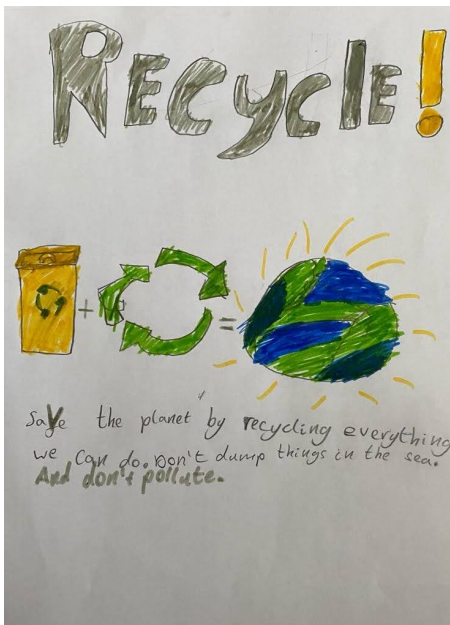 RECYCLE!
+ =
Save the planet" by recycling everything
we can do. Don't dump things in the sea.
And don't pollute.